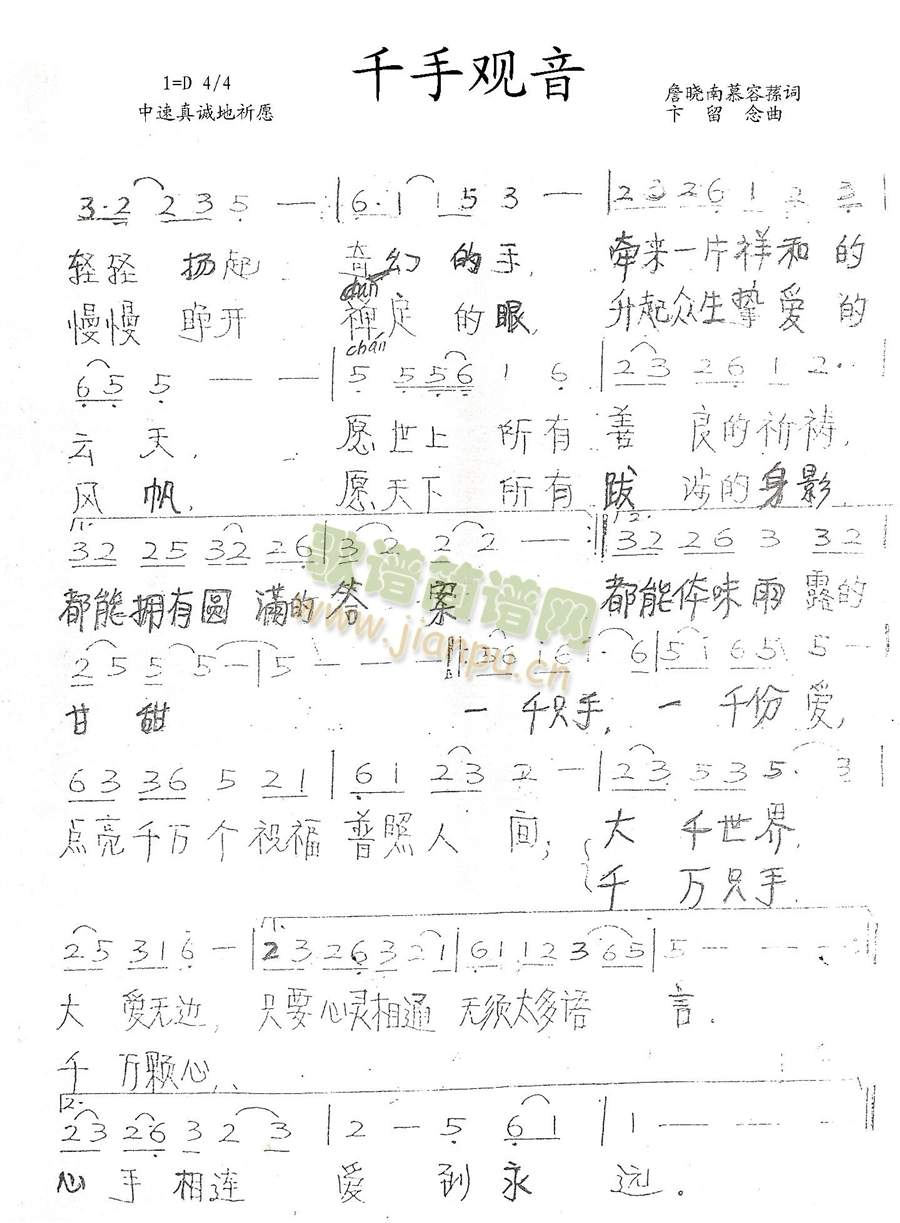 千手观音
1=D 4/4
中速真诚地祈愿
詹晓南慕容蓀词
卞留念曲
3·2 2 3 5 — | 6·1 1 5 3 — | 2 3 2 6 1 2 3 |
轻轻 扬起 奇幻的手, 牵来一片祥和的
chán
慢慢 睁开 禅定的眼, 升起众生挚爱的
chán
6 5 5 — — | 5 5 5 6 1 6 | 2 3 2 6 1 2·· |
云天, 愿世上 所有善 良的祈祷,
风帆, 愿天下 所有跋 涉的身影,
1.
2.
3 2 2 5 3 2 2 6 | 3 2 2 2 — — :| 3 2 2 6 3 3 2 |
都能拥有圆 满的答 案 都能体味雨露的
2 5 5 5 — | 5 — — — |: 5 6 1 6 · 6 | 5 1 6 5 5 — |
甘甜 一千只手, 一千份爱,
6 3 3 6 5 2 1 | 6 1 2 3 2 — | 2 3 5 3 5· 3 |
点亮千万个祝福 普照人间; 大千世界
千万只手
2 5 3 1 6 — | 1. 2 3 2 6 3 2 1 | 6 1 1 2 3 6 5 | 5 — — — :|
大爱无边, 只要心灵相通 无须太多语言.
千万颗心,
2.
2 3 2 6 3 2 3 | 2 — 5 6 1 | 1 — — — ||
心手相连 爱到永远。
歌谱简谱网
www.jianpu.cn